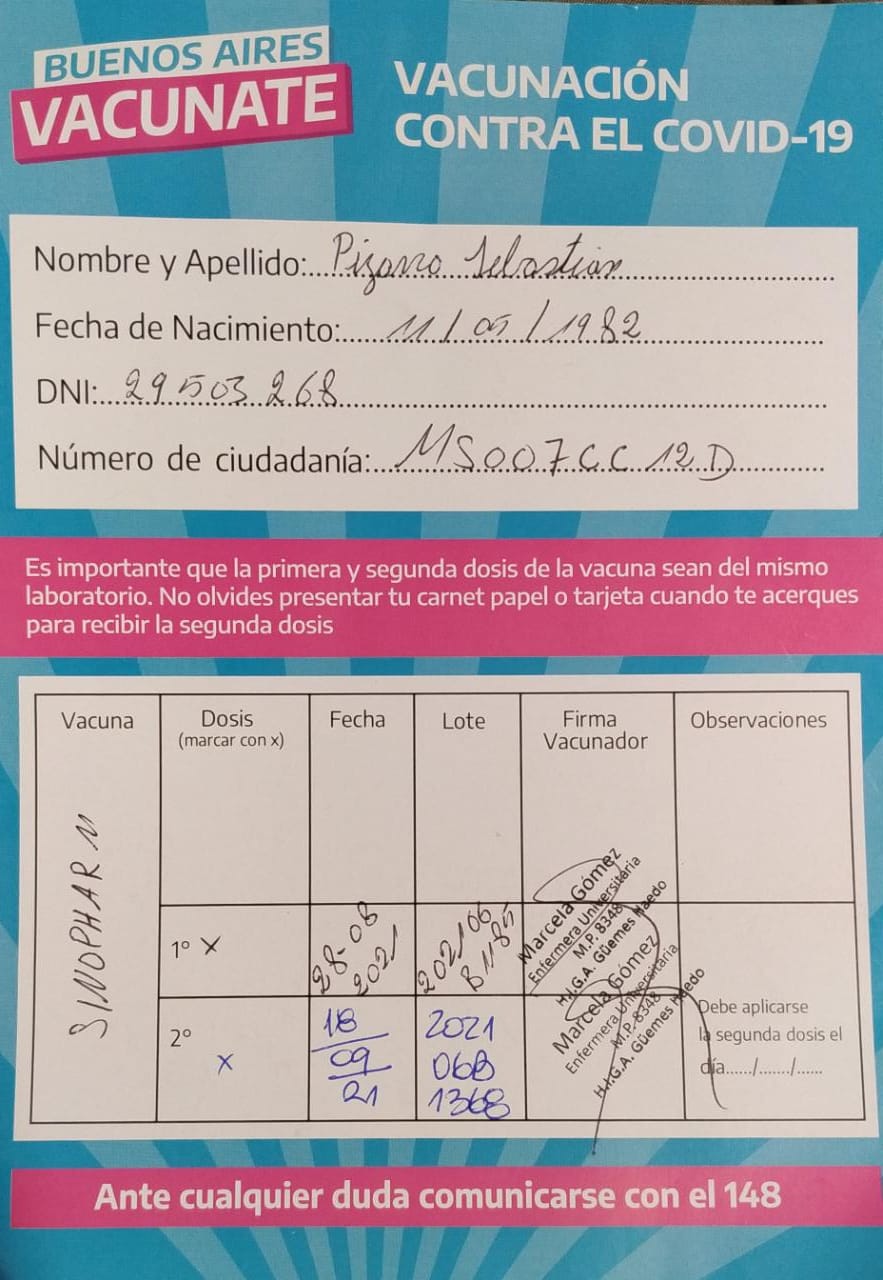 BUENOS AIRES
VACUNATE
VACUNACIÓN
CONTRA EL COVID-19
Nombre y Apellido: Pizarro Sebastian
Fecha de Nacimiento: 11/05/1982
DNI: 29503268
Número de ciudadanía: MS007CC12D
Es importante que la primera y segunda dosis de la vacuna sean del mismo
laboratorio. No olvides presentar tu carnet papel o tarjeta cuando te acerques
para recibir la segunda dosis
Vacuna
Dosis
(marcar con x)
Fecha
Lote
Firma
Vacunador
Observaciones
SINOPHARM
1° X
28-08
2021
202106
B1185
Marcela Gómez
Enfermera Universitaria
M.P. 8348
H.I.G.A. Güemes Haedo
2°
X
18
09
21
2021
06B
1368
Marcela Gómez
Enfermera Universitaria
M.P. 8348
H.I.G.A. Güemes Haedo
Debe aplicarse
la segunda dosis el
día....../......./......
Ante cualquier duda comunicarse con el 148